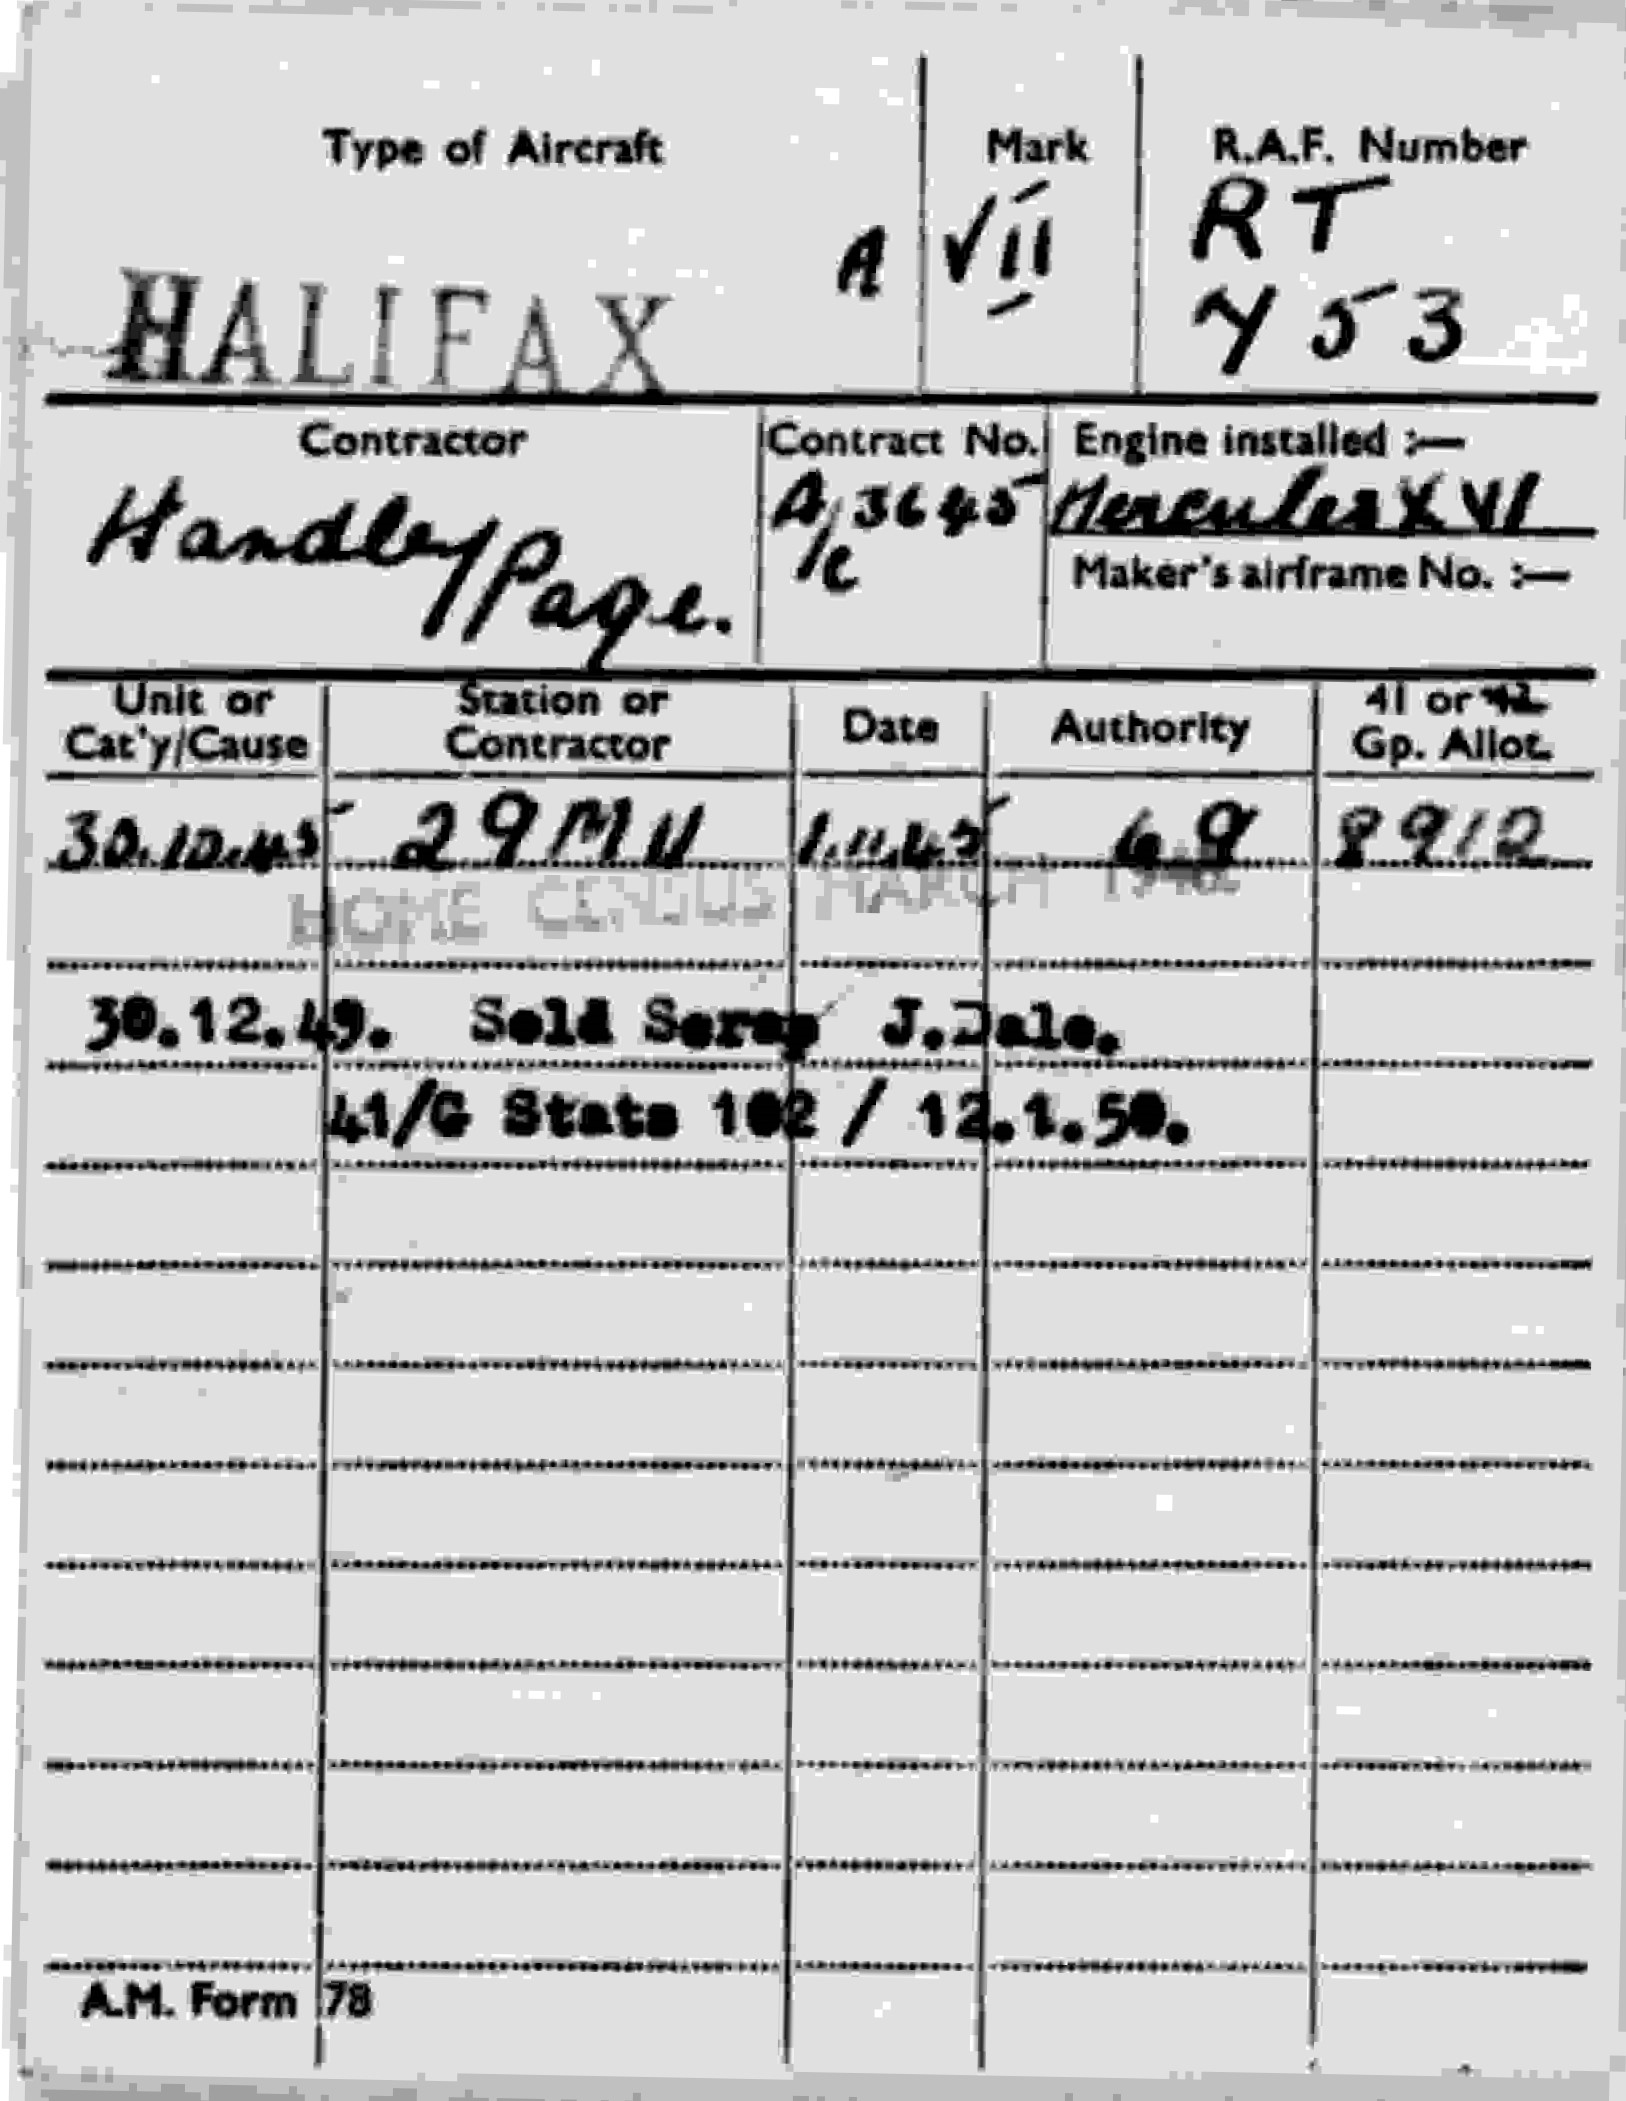 Type of Aircraft
Mark
R.A.F. Number
HALIFAX
A
VII
RT
753
Contractor
Contract No.
Engine installed :—
Handley Page.
A/C 3645
Hercules XVI
Maker's airframe No. :—
Unit or Cat'y/Cause
Station or Contractor
Date
Authority
41 or 42 Gp. Allot.
30.10.45 29 MU 1.11.45 48 8912
HOME CENSUS MARCH 1946
30.12.49. Sold Scrap J.Dale.
41/G Stats 102 / 12.1.50.
A.M. Form 78